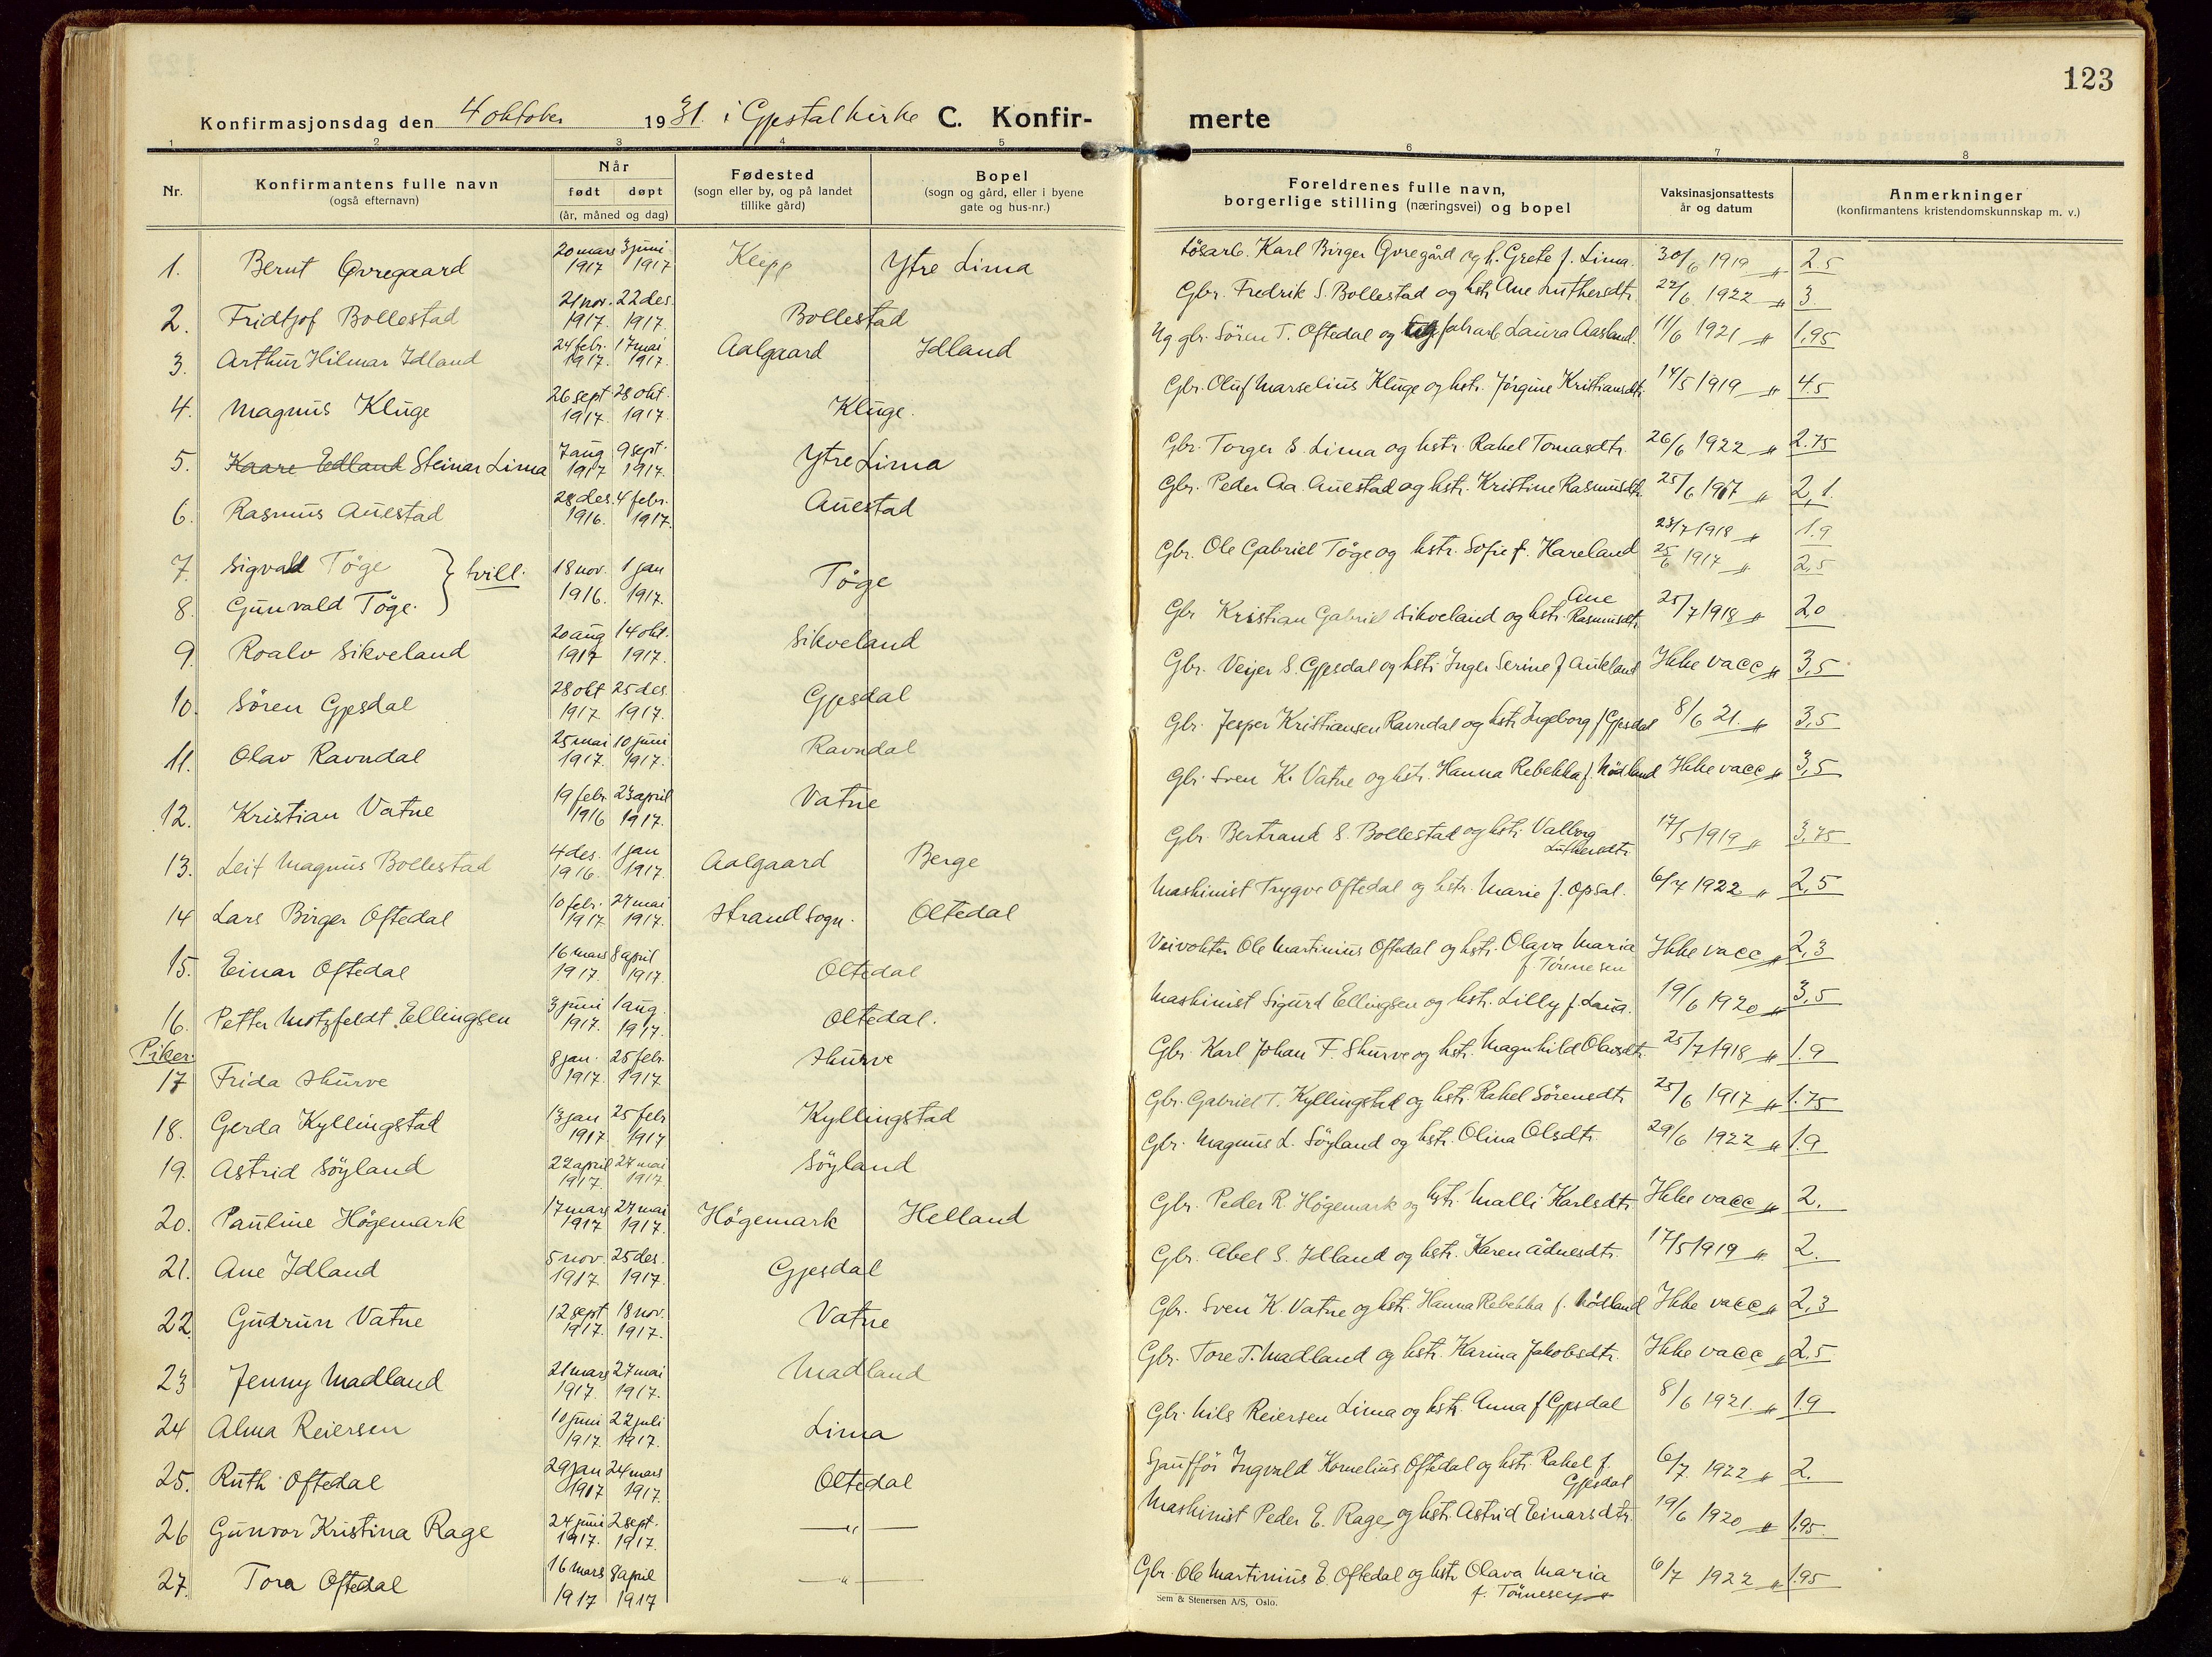 123
Konfirmasjonsdag den 4 oktober 1931. i Gjestal kirke C. Konfir- merte
1 2 3 4 5 6 7 8
Nr. Konfirmantens fulle navn (også efternavn) Når født døpt (år, måned og dag) Fødested (sogn eller by, og på landet tillike gård) Bopel (sogn og gård, eller i byene gate og hus-nr.) Foreldrenes fulle navn, borgerlige stilling (næringsvei) og bopel Vaksinasjonsattests år og datum Anmerkninger (konfirmantens kristendomskunnskap m. v.)
1. Bernt Øvregaard 20 mars 1917 3 juni 1917 Klepp Ytre Lima Løsarb. Karl Birger Øvregård og h. Grete f. Lima. 30/6 1919 " 2.5
2. Fridtjof Bollestad 21 nov. 1917. 22 des. 1917. Bollestad Gbr. Fredrik S. Bollestad og hstr. Ane Luthersdtr. 22/6 1922 " 3
3. Arthur Hilmar Idland 24 febr. 1917. 17 mai 1917. Aalgaard Idland Ug gbr. Søren T. Oftedal og fabrarb Laura Aasland. 11/6 1921 " 1,95
4. Magnus Kluge 26 sept 1917. 28 okt. 1917. Kluge. Gbr. Oluf Marselius Kluge og hstr. Jørgine Kristiansdtr. 14/5 1919 " 4.5
5. Kaare Edland Steinar Lima 7 aug 1917 9 sept. 1917. Ytre Lima Gbr. Torger S. Lima og hstr. Rahel Tomasdtr. 26/6 1922 " 2.75
6. Rasmus Auestad 28 des. 1916. 4 febr. 1917. Auestad Gbr. Peder Aa. Auestad og hstr. Kristine Rasmusdtr. 25/6 1917 " 2,1.
7. Sigvald Tøge } tvill. 18 nov. 1916. 1 jan 1917. Tøge Gbr. Ole Gabriel Tøge og hstr. Sofie f. Hareland 23/7 1918 " 1.9
8. Gunvald Tøge. 25/6 1917 " 2,5
9. Roalv Sikveland 20 aug 1917 14 okt. 1917. Sikveland Gbr Kristian Gabriel Sikveland og hstr. Ane Rasmusdtr. 25/7 1918 " 2,0
10. Søren Gjesdal 28 okt 1917 25 des. 1917. Gjesdal Gbr. Veijer S. Gjesdal og hstr. Inger Serine f Aukland Ikke vacc " 3,5
11. Olav Ravndal 25 mai 1917. 10 juni 1917. Ravndal Gbr. Jesper Kristiansen Ravndal og hstr Ingeborg f Gjesdal 8/6 21. " 3,5
12. Kristian Vatne 19 febr 1916 23 april 1917. Vatne Gbr Sven K. Vatne og hstr. Hanna Rebekka f. Nødland Ikke vacc " 3,5
13. Leif Magnus Bollestad 4 des. 1916. 1 jan 1917. Aalgaard Berge Gbr. Bertrand S. Bollestad og hstr. Valborg Luthersdtr 17/5 1919 " 3,75
14 Lars Birger Oftedal 10 febr. 1917. 27 mai 1917. Strand sogn. Oltedal Maskinist Trygve Oftedal og hstr. Marie f. Opsal. 6/7 1922 " 2,5
15. Einar Oftedal 16 mars 1917. 8 april 1917. Oltedal Veivokter Ole Martinius Oftedal og hstr. Olava Maria f. Tønnesen Ikke vacc " 2,3
16. Petter Motzfeldt Ellingsen 3 juni 1917. 1 aug. 1917. Oltedal. Maskinist Sigurd Ellingsen og hstr. Lilly f. Laua. 19/6 1920 " 3,5
Piker.
17 Frida Skurve 8 jan. 1917. 25 febr. 1917 Skurve Gbr. Karl Johan F. Skurve og hstr. Magnhild Olavsdtr. 25/7 1918 " 1.9
18. Gerda Kyllingstad 13 jan 1917 25 febr 1917 Kyllingstad Gbr. Gabriel T. Kyllingstad og hstr. Rahel Sørensdtr. 25/6 1917 " 1.75
19. Astrid Søyland 22 april 1917. 27 mai 1917. Søyland Gbr. Magnus L. Søyland og hstr. Olina Olsdtr. 29/6 1922 " 1.9
20. Pauline Høgemark 17 mars 1917 27 mai 1917. Høgemark Helland Gbr. Peder R. Høgemark og hstr. Malli Karlsdtr. Ikke vacc " 2.
21. Ane Idland 5 nov. 1917. 25 des. 1917. Gjesdal Gbr. Abel S. Idland og hstr. Karen Ådnesdtr. 17/5 1919 " 2.
22. Gudrun Vatne 12 sept 1917. 18 nov. 1917. Vatne Gbr. Sven K. Vatne og hstr. Hanna Rebekka f. Nødland Ikke vacc " 2,3
23 Jenny Madland 21 mars 1917. 27 mai 1917. Madland Gbr. Tore T. Madland og hstr. Karina Jakobsdtr. Ikke vacc " 2,5
24 Alma Reiersen 10 juni 1917. 22 juli 1917. Lima Gbr. Nils Reiersen Lima og hstr. Anna f Gjesdal 8/6 1921. " 1.9
25. Ruth Oftedal 29 jan 1917 24 mars 1917. Oltedal Sjauffør Ingvald Kornelius Oftedal og hstr. Rahel f. Gjesdal 6/7 1922 " 2.
26 Gunvor Kristina Rage 24 juni 1917. 2 sept. 1917. — " — Maskinist Peder E. Rage og hstr. Astrid Einarsdtr. 19/6 1920 " 1,95.
27. Tora Oftedal 16 mars 1917 8 april 1917 — " — Gbr. Ole Martinius E. Oftedal og hstr Olava Maria f. Tønnesen 6/7 1922 " 1.95
Sem & Stenersen A/S, Oslo.